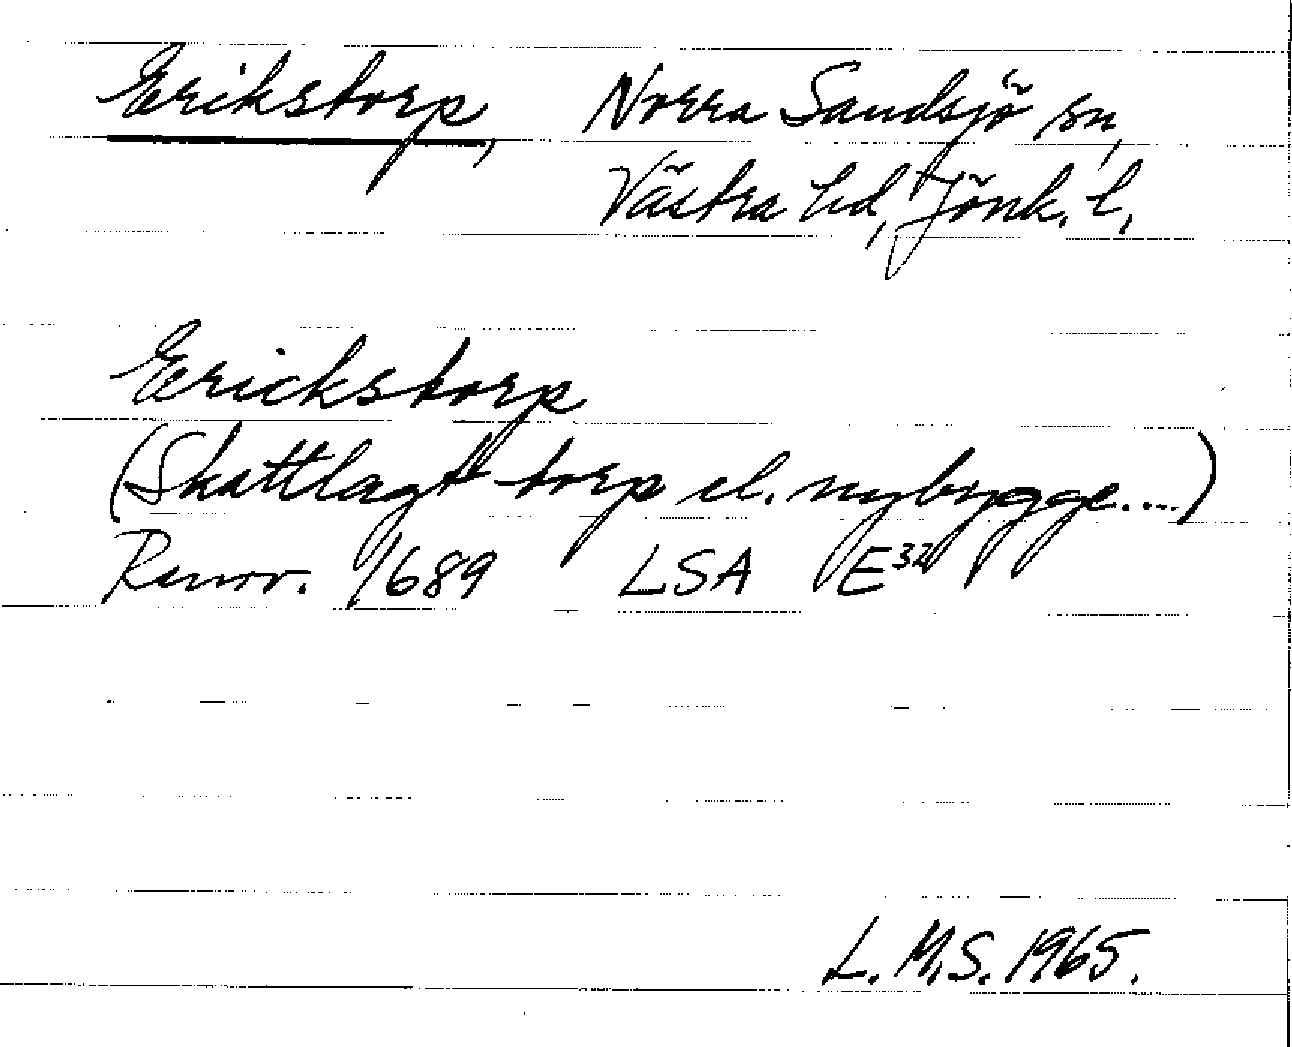 Erikstorp, Norra Sandsjö sn,
Västra hd, Jönk. l.
Erickstorp
(Skattlagt torp el. nybygge....)
Renov. 1689 LSA E³²
L. M. S. 1965.